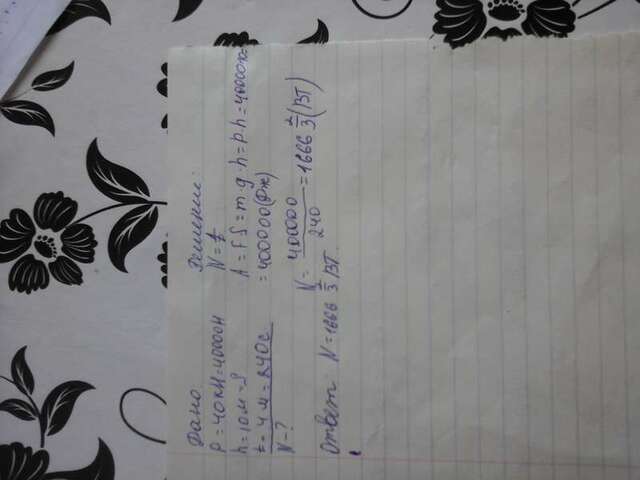 Дано
P = 40кН = 40000Н
h = 10м = S
t = 4м = 240с
N - ?
Решение:
N = t
A = FS = m · g · h = p · h = 40000
= 400000(Дж)
N = 400000/240 = 1666 2/3 (ВТ)
Ответ: N = 1666 2/3 ВТ.